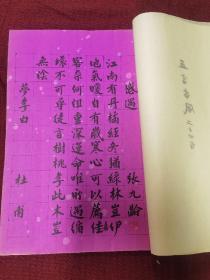 五言古風
感遇
張九齡
江南有丹橘經冬猶綠林豈伊
地氣暖自有歲寒心可以薦佳
客奈何阻重深運命唯所遇循
環不可尋徒言樹桃李此木豈
無陰
夢李白
杜甫